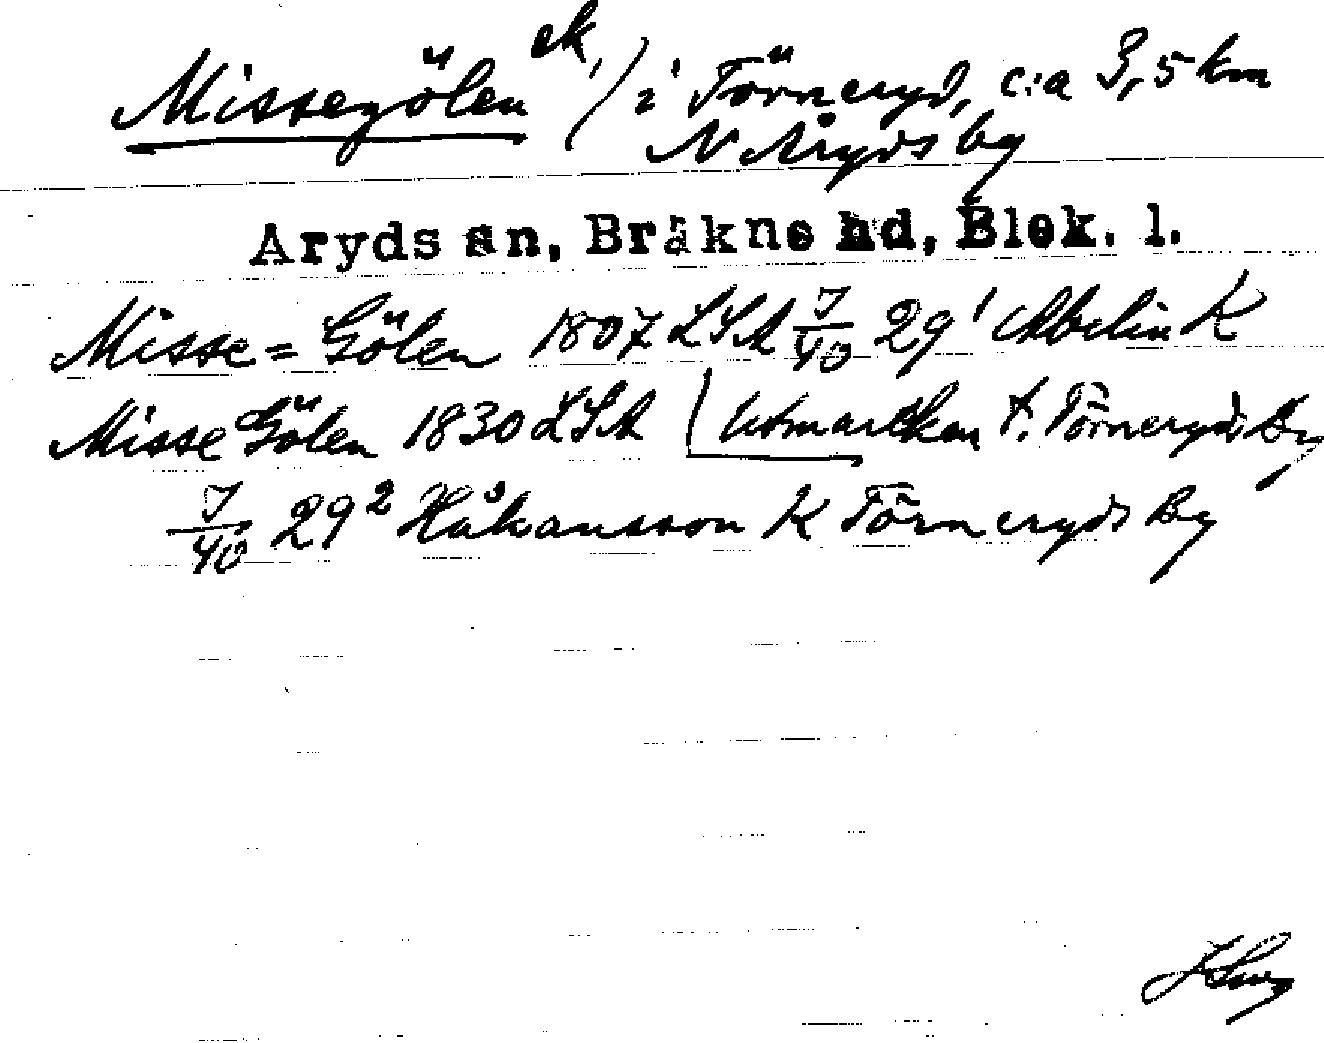 Missegölen ek, / i Törneryd, c:a 3,5 km
N Åryds by
Åryds sn, Bräkne hd, Blek. l.
Misse=Gölen 1807 LSA J/40 29¹ Abelin K
Misse Gölen 1830 LSA Utmarcken t. Törneryds By
J/40 29² Håkansson K Törneryds By